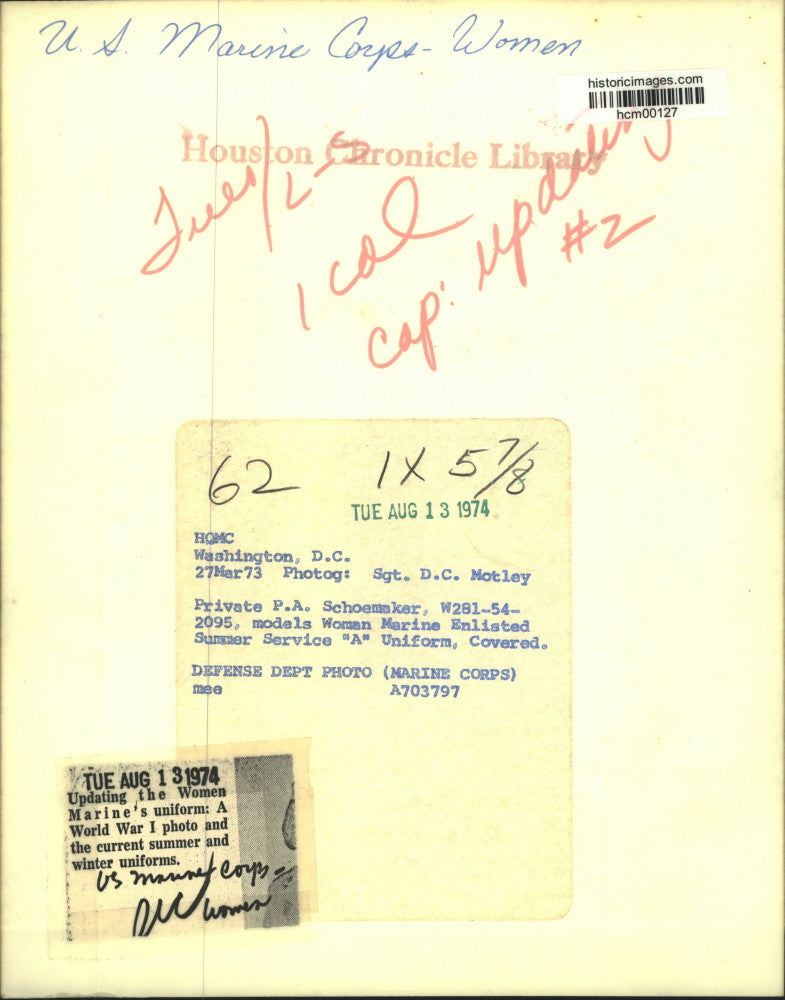 U.S. Marine Corps - Women
historicimages.com
hcm00127
Houston Chronicle Library
Tues/2-S
1 col
cap: updating
#2
62 1 X 5 7/8
TUE AUG 13 1974
HQMC
Washington, D.C.
27Mar73 Photog: Sgt. D.C. Motley
Private P.A. Schoemaker, W281-54-
2095, models Woman Marine Enlisted
Summer Service "A" Uniform, Covered.
DEFENSE DEPT PHOTO (MARINE CORPS)
mee A703797
TUE AUG 13 1974
Updating the Women
Marine's uniform: A
World War I photo and
the current summer and
winter uniforms.
US Marine Corps =
Women